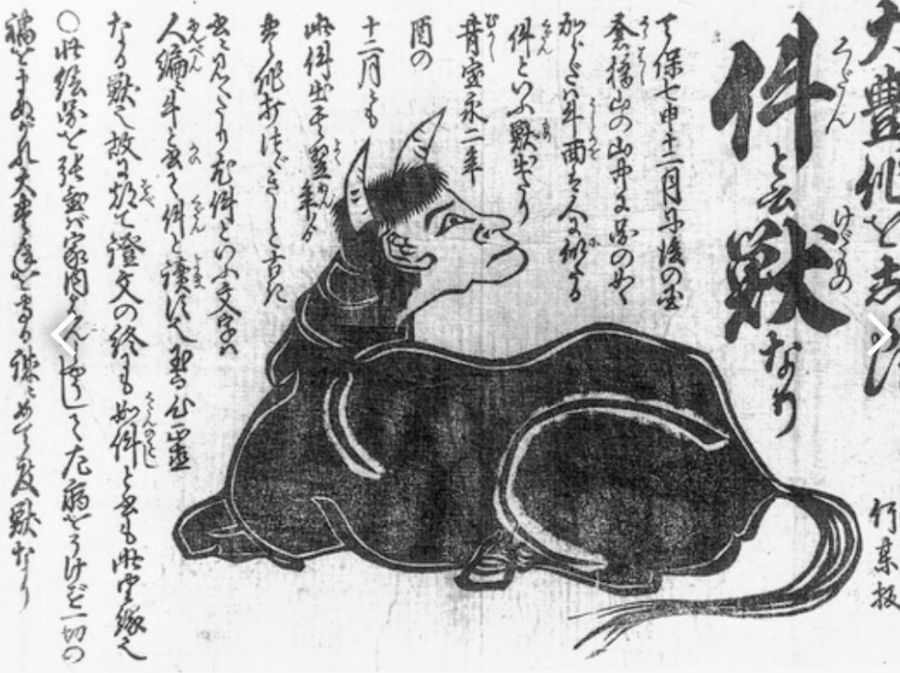 大豊作を志らす
件と云獣なり
くだん
けだもの
天保七申十二月丹後の国
倉橋山の山中に図の如く
からだハ牛面は人に似たる
件といふ獣出たり
昔宝永二年
酉の
十二月にも
此件出て翌年より
豊作打つゞきしこと古
書に見へたり尤件といふ文字ハ
人偏に牛と書て件と讀す也至て心正直
なる獣也故に都て證文の終にも如件と書も此由縁也
○此絵図を張置バ家内はんしやうして厄病をうけず一切の
禍をまぬがれ大豊年となる誠にめで度獣なり